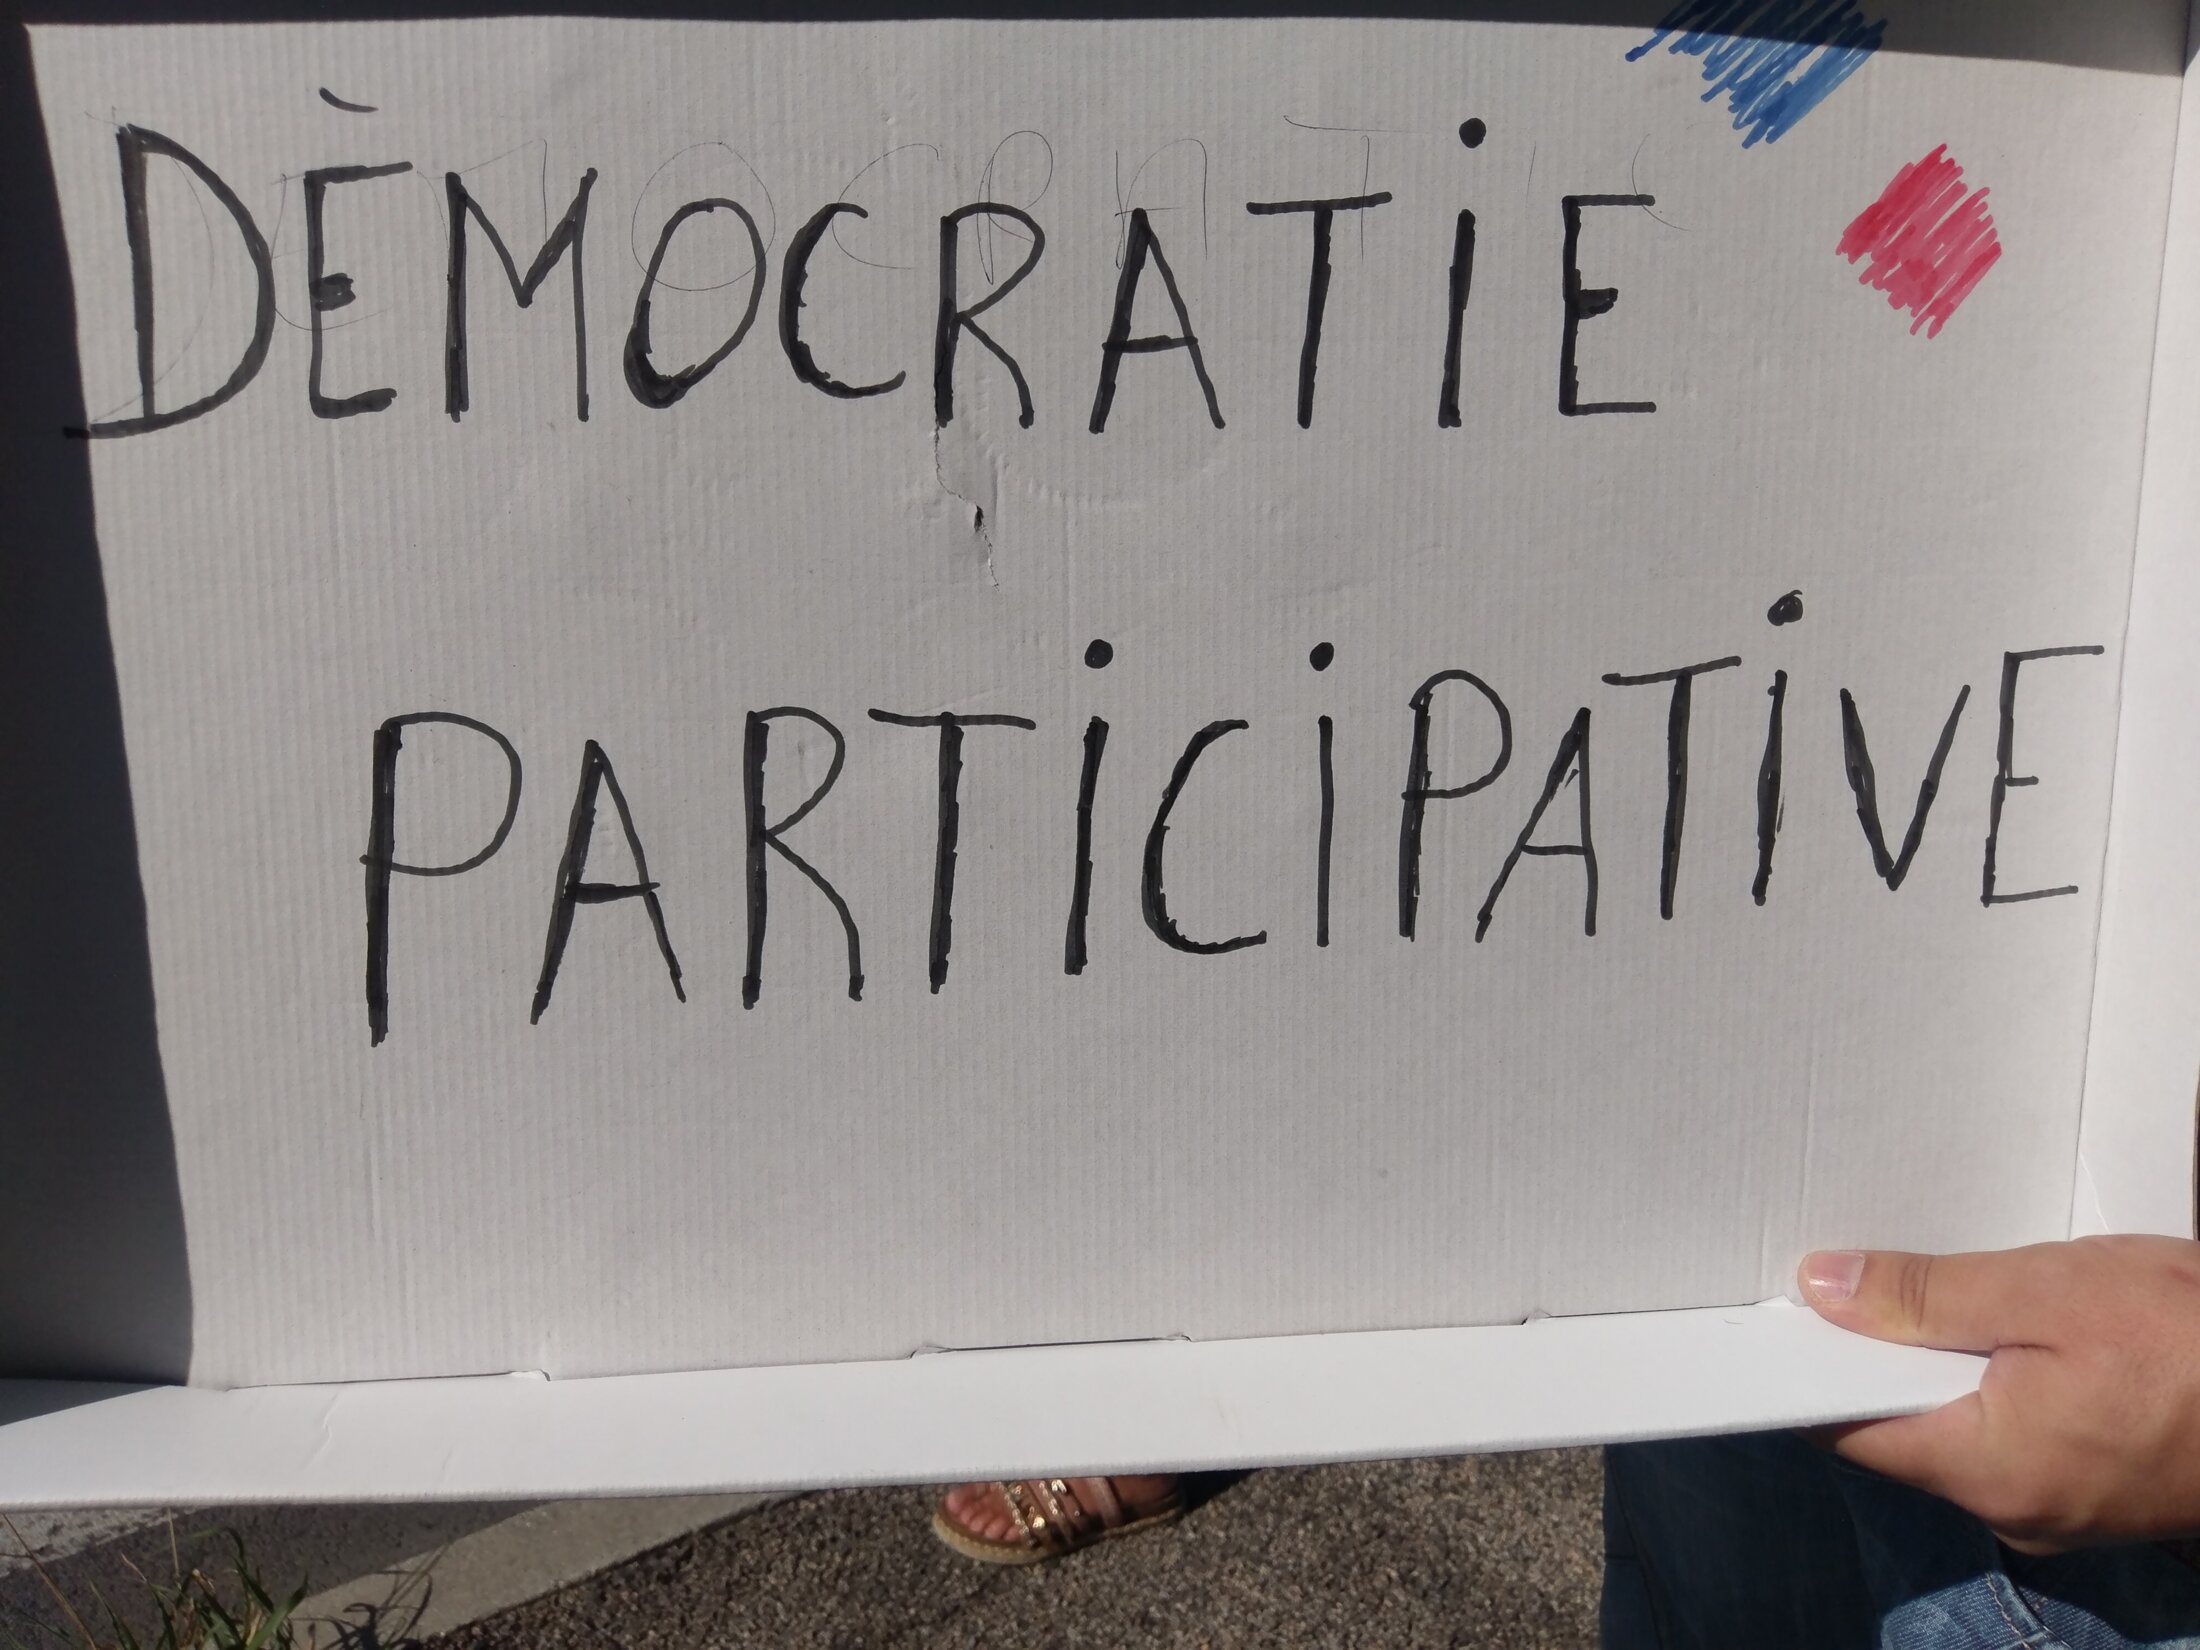 DÈMOCRATiE
PARTiCiPATiVE